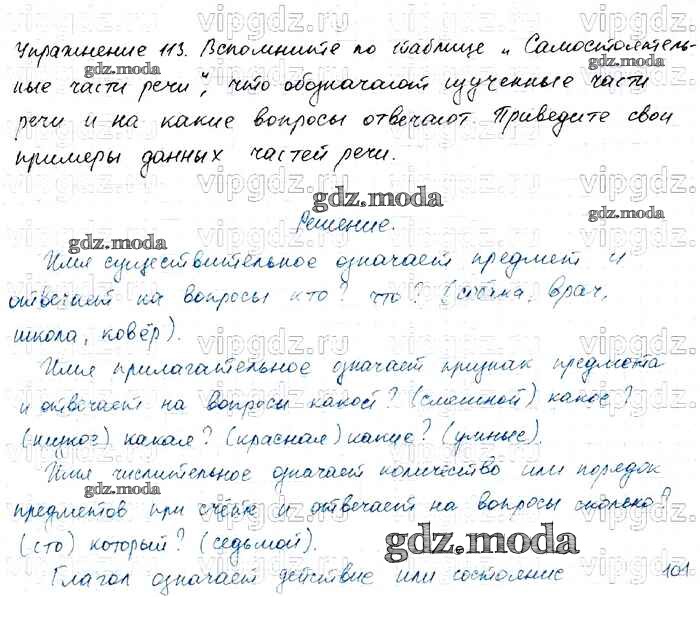 Упражнение 113. Вспомните по таблице „Самостоятель-
ные части речи“, что обозначают изученные части
речи и на какие вопросы отвечают. Приведите свои
примеры данных частей речи.
gdz.moda
Решение.
Имя существительное означает предмет и
отвечает на вопросы кто? что? (стена, врач,
школа, ковёр).
Имя прилагательное означает признак предмета
и отвечает на вопросы какой? (смешной) какое?
(низкое) какая? (красная) какие? (умные).
Имя числительное означает количество или порядок
предметов при счёте и отвечает на вопросы сколько?
(сто) который? (седьмой).
gdz.moda
Глагол означает действие или состояние
101